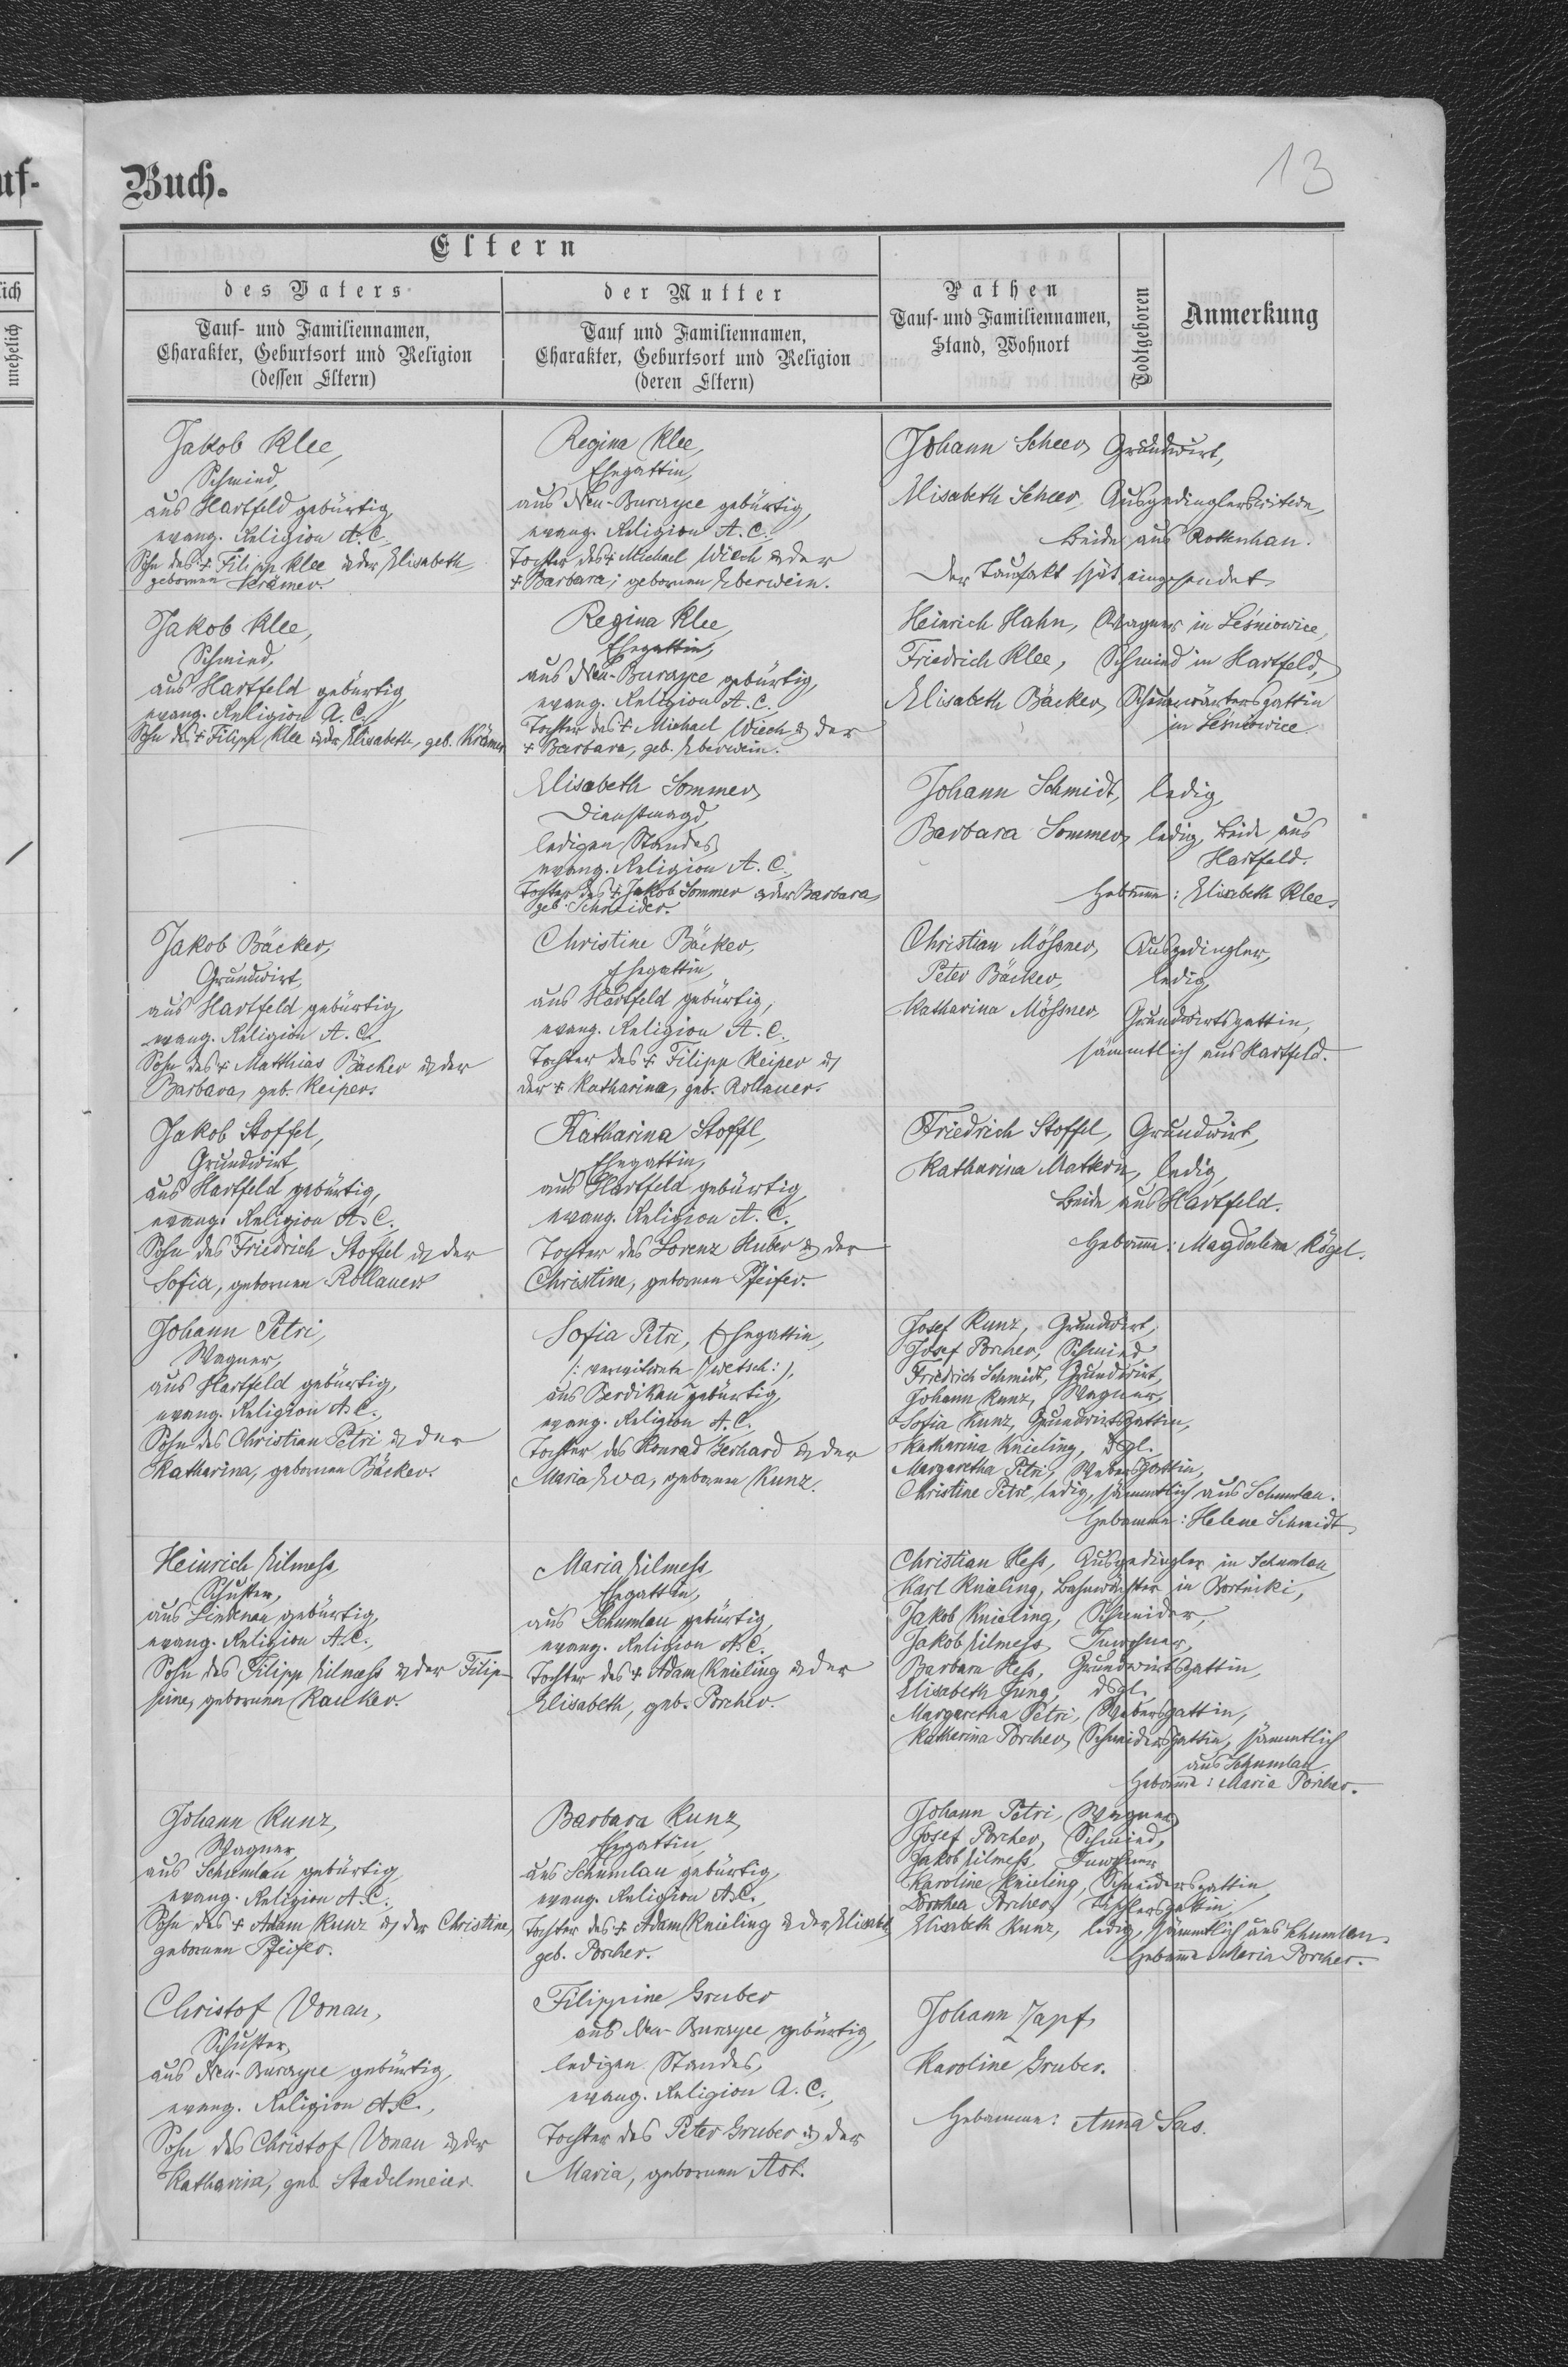 uf-
Buch.
13
Eltern
des Vaters
der Mutter
Pathen
Todtgeboren
Anmerkung
lich
unehelich
Tauf- und Familiennamen,
Charakter, Geburtsort und Religion
(dessen Eltern)
Tauf und Familiennamen,
Charakter, Geburtsort und Religion
(deren Eltern)
Tauf- und Familiennamen,
Stand, Wohnort
Jakob Klee,
Schmied,
aus Hartfeld gebürtig,
evang. Religion A. C.
Sohn des + Filipp Klee u. der Elisabeth
gebornen Krämer.
Regina Klee,
Ehegattin,
aus Neu-Burczyce gebürtig,
evang. Religion A. C.
Tochter des + Michael Wiech u. der
+ Barbara, gebornen Eberwein.
Johann Scheer, Grundwirt,
Elisabeth Scheer, Ausgedinglerswitwe,
beide aus Rottenhan.
Der Taufakt spät eingesendet
Jakob Klee,
Schmied,
aus Hartfeld gebürtig,
evang. Religion A. C.
Sohn des + Filipp Klee u. der Elisabeth, geb. Krämer
Regina Klee,
Ehegattin,
aus Neu-Burczyce gebürtig,
evang. Religion A. C.
Tochter des + Michael Wiech u. der
+ Barbara, geb. Eberwein.
Heinrich Hahn, Wagner in Leśniowice,
Friedrich Klee, Schmied in Hartfeld,
Elisabeth Bäcker,
in Leśniowice.
Elisabeth Sommer,
Dienstmagd,
ledigen Standes,
evang. Religion A. C.
Tochter des + Jakob Sommer u. der Barbara,
geb. Schneider.
Johann Schmidt, ledig,
Barbara Sommer, ledig, beide aus
Hartfeld.
Hebamme: Elisabeth Klee.
Jakob Bäcker,
Grundwirt,
aus Hartfeld gebürtig,
evang. Religion A. C.
Sohn des + Matthias Bäcker u. der
Barbara, geb. Keiper.
Christine Bäcker,
Ehegattin,
aus Hartfeld gebürtig,
evang. Religion A. C.
Tochter des + Filipp Keiper u.
der + Katharina, geb. Rollauer.
Christian Mößner, Ausgedingler,
Peter Bäcker, ledig,
Katharina Mößner, Grundwirtsgattin,
sämmtlich aus Hartfeld.
Jakob Stoffel,
Grundwirt,
aus Hartfeld gebürtig,
evang. Religion A. C.
Sohn des Friedrich Stoffel u. der
Sofia, gebornen Rollauer
Katharina Stoffl,
Ehegattin,
aus Hartfeld gebürtig,
evang. Religion A. C.
Tochter des Lorenz Huber u. der
Christine, gebornen Pfeifer.
Friedrich Stoffel, Grundwirt,
Katharina Mattern, ledig,
beide aus Hartfeld.
Hebamme: Magdalena Kögel.
Johann Petri,
Wagner,
aus Hartfeld gebürtig,
evang. Religion A. C.
Sohn des Christian Petri u. der
Katharina, gebornen Bäcker.
Sofia Petri, Ehegattin,
(: verwitwete Zwetsch :),
aus Berdikau gebürtig,
evang. Religion A. C.
Tochter des Konrad Gerhard u. der
Maria Eva, gebornen Kunz.
Josef Kunz, Grundwirt,
Josef Porcher, Schmied
Friedrich Schmidt, Grundwirt,
Johann Kunz, Wagner,
Sofia Kunz, Grundwirtsgattin,
Katharina Knieling, dsgl.
Margaretha Petri, Webersgattin,
Christine Petri, ledig, sämmtlich aus Schumlau.
Hebamme: Helene Schmidt
Heinrich Hilmess
Schuster,
aus Lindenau gebürtig,
evang. Religion A. C.
Sohn des Filipp Hilmess u. der Filip-
pine, gebornen Kauker.
Maria Hilmess
Ehegattin,
aus Schumlau gebürtig,
evang. Religion A. C.
Tochter des + Adam Knieling u. der
Elisabeth, geb. Porcher.
Christian Hess, Ausgedingler in Schumlau
Karl Knieling, Bahnwächter in Bortniki,
Jakob Knieling, Schneider,
Jakob Hilmess, Inwohner,
Barbara Hess, Grundwirtsgattin,
Elisabeth Jung, dsgl.
Margaretha Petri, Webersgattin,
Katharina Porcher, Schneidersgattin, sämmtlich
aus Schumlau
Hebamme: Maria Porcher.
Johann Kunz,
Wagner
aus Schumlau gebürtig,
evang. Religion A. C.
Sohn des + Adam Kunz u. der Christine,
gebornen Pfeifer.
Barbara Kunz,
Ehegattin,
aus Schumlau gebürtig,
evang. Religion A. C.
Tochter des + Adam Knieling u. der Elisabeth
geb. Porcher.
Johann Petri, Wagner,
Josef Porcher, Schmied,
Jakob Hilmess, Inwohner
Karoline Knieling, Schneidersgattin
Dorothea Porcher,
Elisabeth Kunz, ledig, sämmtlich aus Schumlau.
Hebamme Maria Porcher.
Christof Vonau,
Schuster,
aus Neu-Burczyce gebürtig,
evang. Religion A. C.,
Sohn des Christof Vonau u. der
Katharina, geb. Stadelmeier.
Filippine Gruber
aus Neu-Burczyce gebürtig,
ledigen Standes,
evang. Religion A. C.,
Tochter des Peter Gruber u. der
Maria, gebornen Ast.
Johann Zapf,
Karoline Gruber.
Hebamme: Anna Sas.